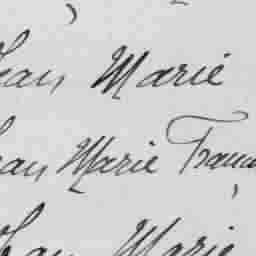 Jean Marie
Jean Marie Fran
Jean Marie